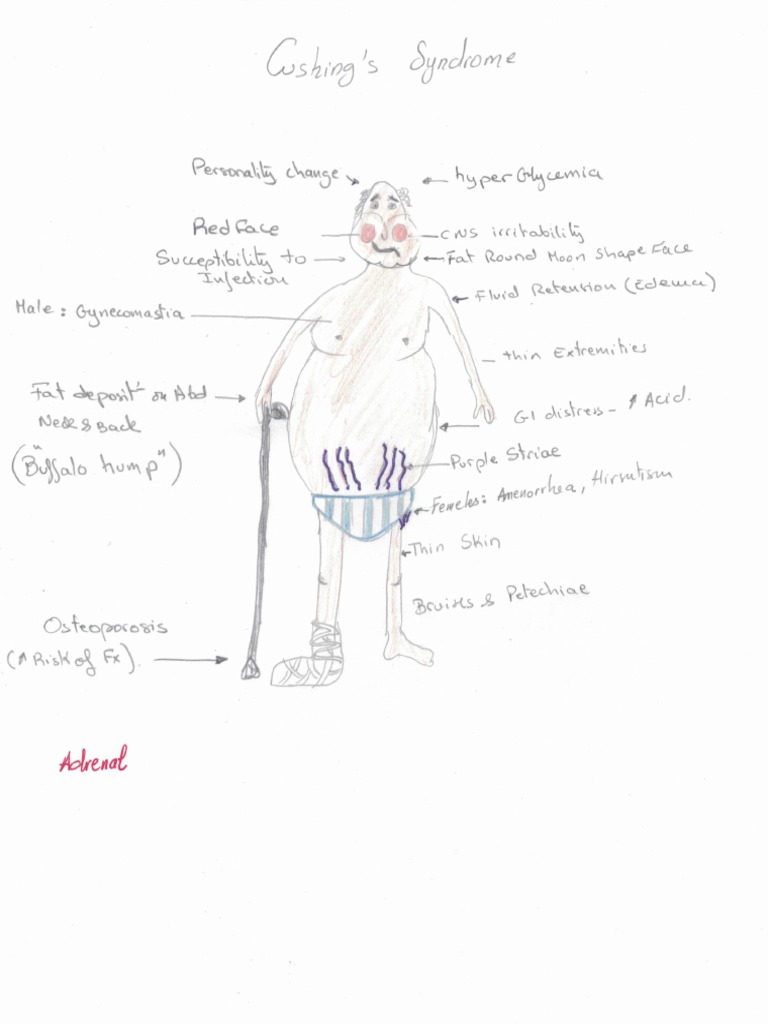 Cushing's Syndrome
Personality change
hyper Glycemia
Red Face
CNS irritability
Succeptibility to
Infection
Fat Round Moon Shape Face
Fluid Retension (Edema)
Male: Gynecomastia
thin Extremities
Fat deposit on Abd
Neck & Back
("Buffalo hump")
GI distress - ↑ Acid.
Purple Striae
Females: Amenorrhea, Hirsutism
Thin Skin
Bruises & Petechiae
Osteoporosis
(↑ Risk of Fx).
Adrenal